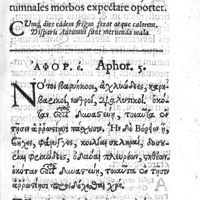 tumnales morbos expectare oportet.
Cùmq́, dies eadem frigus ferat atque calorem,
Disparis Autumni sunt metuenda mala.
ΑΦΟΡ. ε. Aphor. 5.
ΝΟτοι βαρυήκοοι, ἀχλυώδεες, καρη-
βαρικοὶ, νωθροὶ, διαλυτικοὶ. ὁκό-
ταν οὗτος δυναστεύη, τοιαῦτα ἐν
τῇσιν ἀρρωστίῃσι πάσχουσιν. Ἢν δὲ βόρειον ᾖ,
βῆχες, φάρυγγες, κοιλίαι σκληραὶ, δυσου-
ρίαι φρικώδεες, ὀδύναι πλευρέων, στηθέων.
ὁκόταν οὗτος δυναστεύη, τοιαῦτα ἐν τῇσιν
ἀρρωστίῃσι προσδέχεσθαι χρή.